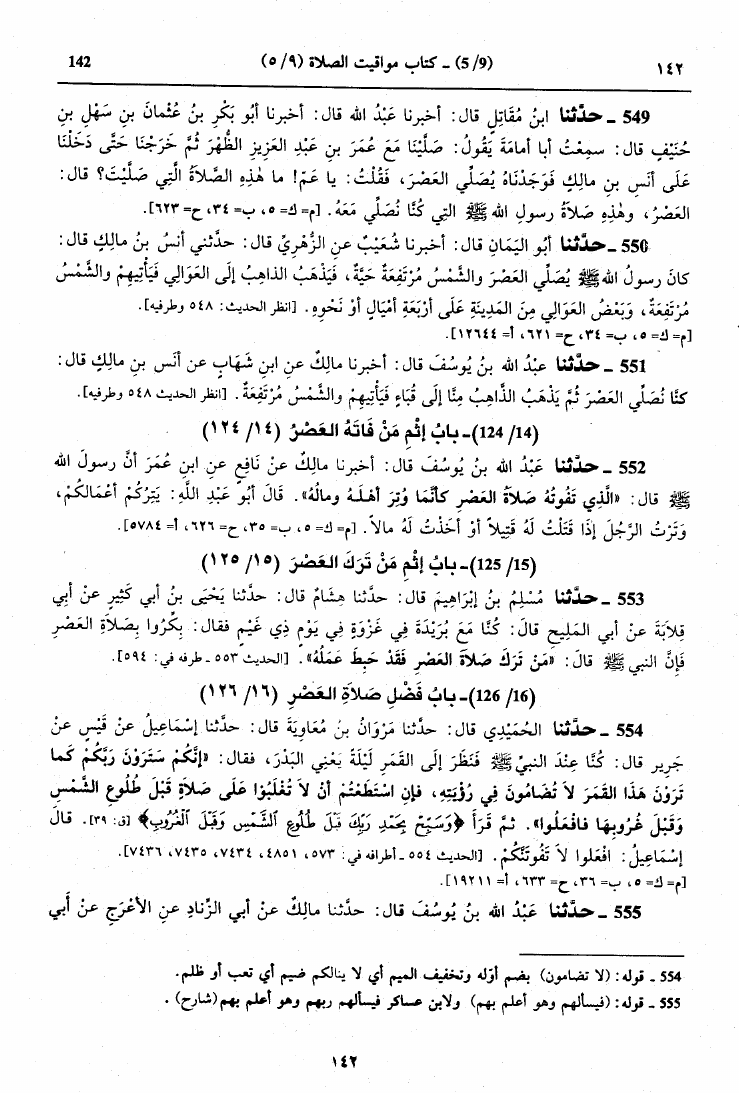 ١٤٢ (5/9) - كتاب مواقيت الصلاة (٥/٩) 142
549 ـ حدَّثنا ابنُ مُقَاتِلٍ قال: أخبرنا عَبْدُ الله قال: أخبرنا أبُو بَكْرِ بنُ عُثْمانَ بنِ سَهْلِ بنِ
حُنَيْفٍ قال: سمِعْتُ أبا أمامَةَ يَقُولُ: صَلَّيْنَا مَعَ عُمَرَ بنِ عَبْدِ العَزِيزِ الظُّهْرَ ثُمَّ خَرَجْنَا حَتَّى دَخَلْنَا
عَلَى أنَسِ بنِ مالِكٍ فَوَجَدْنَاهُ يُصَلِّي العَصْرَ، فَقُلْتُ: يا عَمِّ! ما هٰذِهِ الصَّلاَةُ الَّتِي صَلَّيْتَ؟ قال:
العَصْرُ، وهٰذِهِ صَلاَةُ رسولِ الله ﷺ التي كُنَّا نُصَلِّي مَعَهُ. [م= ك= ٥، ب= ٣٤، ح= ٦٢٣].
550 ـ حدَّثنا أبُو اليَمَانِ قال: أخبرنا شُعَيْبٌ عنِ الزُّهْرِيِّ قال: حدَّثني أنسُ بنُ مالِكٍ قال:
كانَ رسولُ الله ﷺ يُصَلِّي العَصْرَ والشَّمْسُ مُرْتَفِعَةٌ حَيَّةٌ، فَيَذْهَبُ الذاهِبُ إلَى العَوَالِي فَيَأْتِيهِمْ والشَّمْسُ
مُرْتَفِعَةٌ، وَبَعْضُ العَوَالِي مِنَ المَدِينَةِ عَلَى أرْبَعَةِ أمْيَالٍ أوْ نَحْوِهِ. [انظر الحديث: ٥٤٨ وطرفيه].
[م= ك= ٥، ب= ٣٤، ح= ٦٢١، أ= ١٢٦٤٤].
551 ـ حدَّثنا عبْدُ الله بنُ يُوسُفَ قال: أخبرنا مالِكٌ عنِ ابنِ شَهَابٍ عن أنَسِ بنِ مالِكٍ قال:
كنَّا نُصَلِّي العَصْرَ ثُمَّ يَذْهَبُ الذَّاهِبُ مِنَّا إلَى قُبَاءٍ فَيَأْتِيهِمْ والشَّمْسُ مُرْتَفِعَةٌ. [انظر الحديث ٥٤٨ وطرفيه].
(124/14)- بابُ إثْمِ مَنْ فَاتَهُ العَصْرُ (١٤/ ١٢٤)
552 ـ حدَّثنا عَبْدُ الله بنُ يُوسُفَ قال: أخبرنا مالِكٌ عنْ نَافِعٍ عنِ ابنِ عُمَرَ أنَّ رسولَ الله
ﷺ قال: «الَّذِي تَفُوتُهُ صَلاَةُ العَصْرِ كأنَّمَا وُتِرَ أهْلَهُ ومالَهُ». قَالَ أبُو عَبْدِ اللَّهِ: يَتِرَكُمْ أعْمَالَكُمْ،
وَتَرْتُ الرَّجُلَ إذَا قَتَلْتَ لَهُ قَتِيلاً أوْ أخَذْتَ لَهُ مالاً. [م= ك= ٥، ب= ٣٥، ح= ٦٢٦، أ= ٥٧٨٤].
(125/15)- بابُ إثْمِ مَنْ تَرَكَ العَصْرَ (١٥/ ١٢٥)
553 ـ حدَّثنا مُسْلِمُ بنُ إبْرَاهِيمَ قال: حدَّثنا هِشَامٌ قال: حدَّثنا يَحْيَى بنُ أبي كَثِيرٍ عنْ أبي
قِلابَةَ عنْ أبي المَلِيحِ قالَ: كُنَّا مَعَ بُرَيْدَةَ فِي غَزْوَةٍ فِي يَوْمٍ ذِي غَيْمٍ فقال: بكِّرُوا بِصَلاَةِ العَصْرِ
فَإنَّ النبي ﷺ قالَ: «مَنْ تَرَكَ صَلاَةَ العَصْرِ فَقَدْ حَبِطَ عَمَلُهُ». [الحديث ٥٥٣ ـ طرفه في: ٥٩٤].
(126/16)- بابُ فَضْلِ صَلاَةِ العَصْرِ (١٦/ ١٢٦)
554 ـ حدَّثنا الحُمَيْدِي قال: حدَّثنا مَرْوَانُ بنُ مُعَاوِيَةَ قال: حدَّثنا إسْمَاعِيلُ عنْ قَيْسٍ عنْ
جَرِيرٍ قال: كُنَّا عِنْدَ النبيِّ ﷺ فَنَظَرَ إلَى القَمَرِ لَيْلَةً يَعْنِي البَدْرَ، فقال: «إنَّكُمْ سَتَرَوْنَ رَبَّكُمْ كَما
تَرَوْنَ هَذَا القَمَرَ لاَ تُضَامُونَ فِي رُؤْيَتِهِ، فإنِ اسْتَطَعْتُمْ أنْ لاَ تُغْلَبُوا عَلَى صَلاَةٍ قَبْلَ طُلُوعِ الشَّمْسِ
وَقَبْلَ غُرُوبِهَا فافْعَلُوا». ثمَّ قَرَأَ ﴿وَسَبِّحْ بِحَمْدِ رَبِّكَ قَبْلَ طُلُوعِ ٱلشَّمْسِ وَقَبْلَ ٱلْغُرُوبِ﴾ [ق: ٣٩]. قالَ
إسْمَاعِيلُ: افْعَلوا لاَ تَفُوتَنَّكُمْ. [الحديث ٥٥٤ ـ أطرافه في: ٥٧٣، ٤٨٥١، ٧٤٣٤، ٧٤٣٥، ٧٤٣٦].
[م= ك= ٥، ب= ٣٦، ح= ٦٣٣، أ= ١٩٢١١].
555 ـ حدَّثنا عَبْدُ الله بنُ يُوسُفَ قال: حدَّثنا مَالِكٌ عنْ أبي الزِّنادِ عنِ الأعْرَجِ عنْ أبي
554 ـ قوله: (لا تضامون) بضم أوّله وتخفيف الميم أي لا ينالكم ضيم أي تعب أو ظلم.
555 ـ قوله: (فيسألهم وهو أعلم بهم) ولابن عساكر فيسألهم ربهم وهو أعلم بهم (شارح).
١٤٢